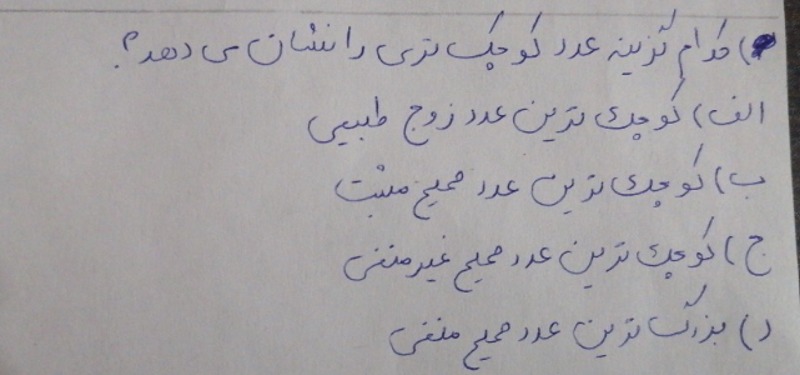 ) کدام گزینه عدد کوچک تری را نشان می دهد؟
الف) کوچک ترین عدد زوج طبیعی
ب) کوچک ترین عدد صحیح مثبت
ج) کوچک ترین عدد صحیح غیر منفی
د) بزرگ ترین عدد صحیح منفی